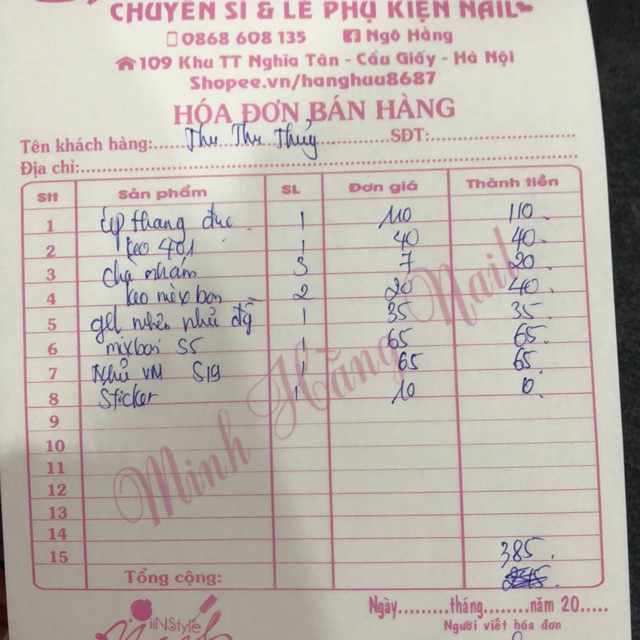 CHUYÊN SỈ & LẺ PHỤ KIỆN NAIL
0868 608 135 Ngô Hằng
109 Khu TT Nghĩa Tân - Cầu Giấy - Hà Nội
Shopee.vn/hanghuu8687
HÓA ĐƠN BÁN HÀNG
Tên khách hàng: Thu Thu Thủy SĐT:
Địa chỉ:
Stt Sản phẩm SL Đơn giá Thành tiền
1 úp thang đục 1 110 110
2 keo 401 1 40 40
3 chà nhám 3 7 20
4 keo mix bon 2 20 40
5 gel nhũ 1 35 35
6 mixbon S5 1 65 65
7 Nhũ VM S19 1 65 65
8 Sticker 1 10 0
9
10
11
12
13
14
15 385
Tổng cộng:
Minh Hằng Nail
iiNStyle
Ngày.........tháng.........năm 20.....
Người viết hóa đơn